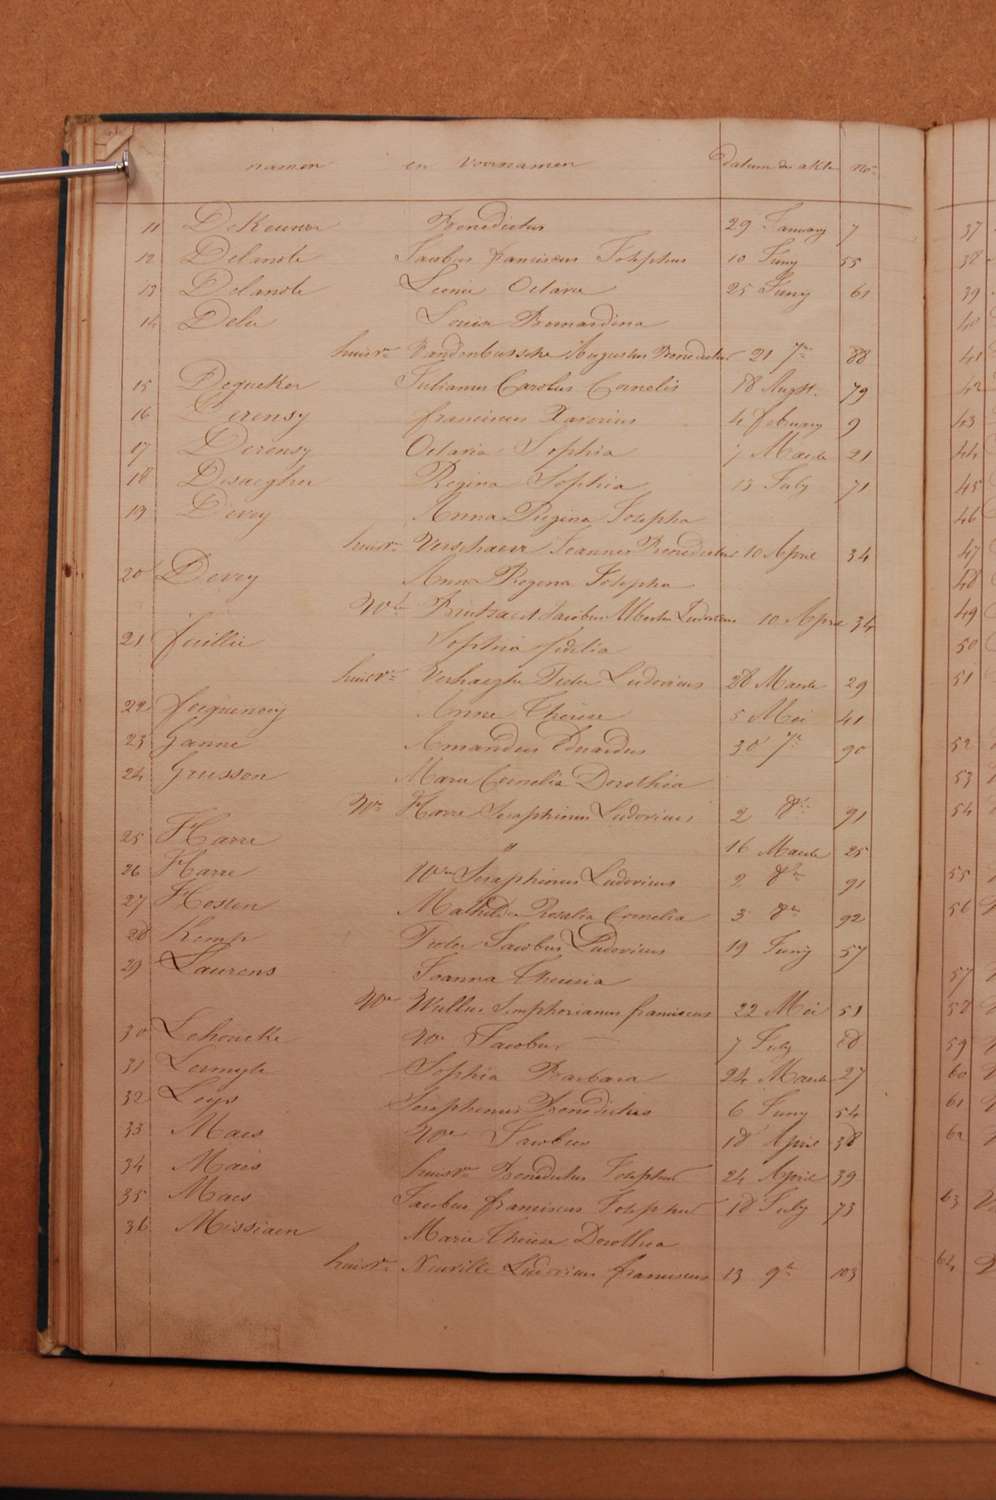 namen en voornamen datum der akte No
11 DeKeuner Benedictus 29 January 7
12 Delanote Jacobus franciscus Josephus 10 Juny 55
13 Delanote Leonie Octavie 25 Juny 61
14 Delie Louise Bernardina
huisve Vandenbussche Augustus Benedictus 21 7re 88
15 Dequeker Julianus Carolus Cornelis 18 Augst. 79
16 Derensy franciscus Xaverius 4 february 9
17 Derensy Octavie Sophia 7 Maerte 21
18 Desaegher Regina Sophia 13 July 71
19 Devey Anna Regina Josepha
huisve Verschaeve Joannes Benedictus 10 April 34
20 Devey Anna Regina Josepha
We Jacobus Albertus Ludovicus 10 April 34
21 faillie Sophia fidelia
huisve Verhaeghe Pieter Ludovicus 28 Maerte 29
22 Anne Therese 5 Mei 41
23 Ganne Amandus Eduardus 30 7re 90
24 Grusson Marie Cornelia Dorothéa
We Havre Seraphinus Ludovicus 2 8bre 91
25 Havre " 16 Maerte 25
26 Havre We Seraphinus Ludovicus 2 8bre 91
27 Hosten Mathilde Rosalia Cornelia 3 8re 92
28 Kemp Pieter Jacobus Ludovicus 19 Juny 57
29 Laurens Joanna Theresia
We Wullus Simphorianus franciscus 22 Mei 51
30 Lehoucke We Jacobus 7 July 68
31 Lermyte Sophia Barbara 24 Maerte 27
32 Leys Seraphinus Benedictus 6 Juny 54
33 Maes We Jacobus 18 April 38
34 Maes huisve Benedictus Josephus 24 April 39
35 Maes Jacobus franciscus Josephus 18 July 73
36 Missiaen Marie Therese Dorothea
huisve Neuville Ludovicus franciscus 13 9re 103
37
38
39
40
41
42
43
44
45
46
47
48
49
50
51
52
53
54
55
56
57
58
59
60
61
62
63
64